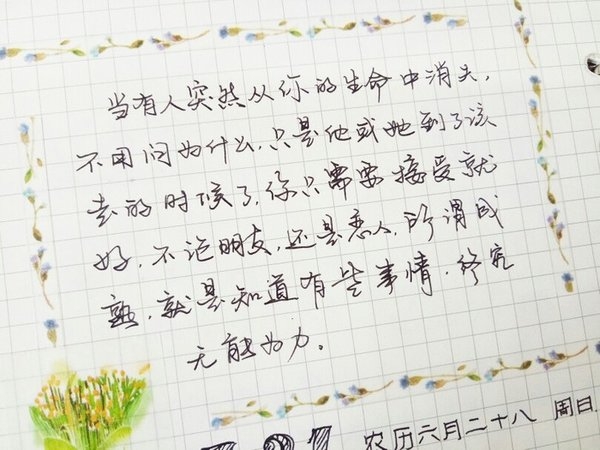 当有人突然从你的生命中消失，
不用问为什么，只是他或她到了该
去的时候了，你只需要接受就
好，不论朋友，还是恋人，所谓成
熟，就是知道有些事情，终究
无能为力。
农历六月二十八 周日